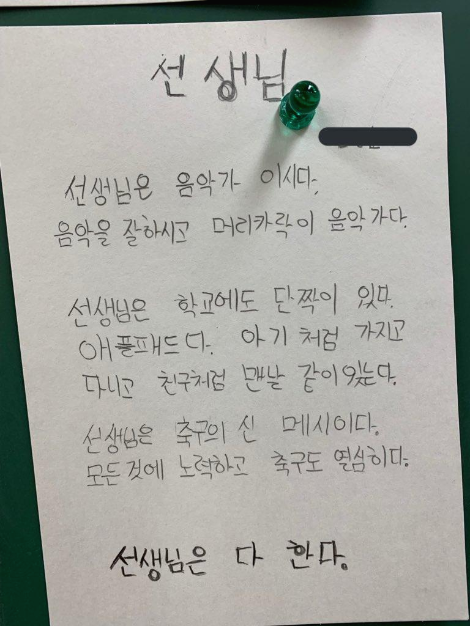 선생님
선생님은 음악가 이시다.
음악을 잘하시고 머리카락이 음악가다.
선생님은 학교에도 단짝이 있다.
애플패드다. 아기처럼 가지고
다니고 친구처럼 맨날 같이있는다.
선생님은 축구의 신 메시이다.
모든것에 노력하고 축구도 열심히다.
선생님은 다 한다.